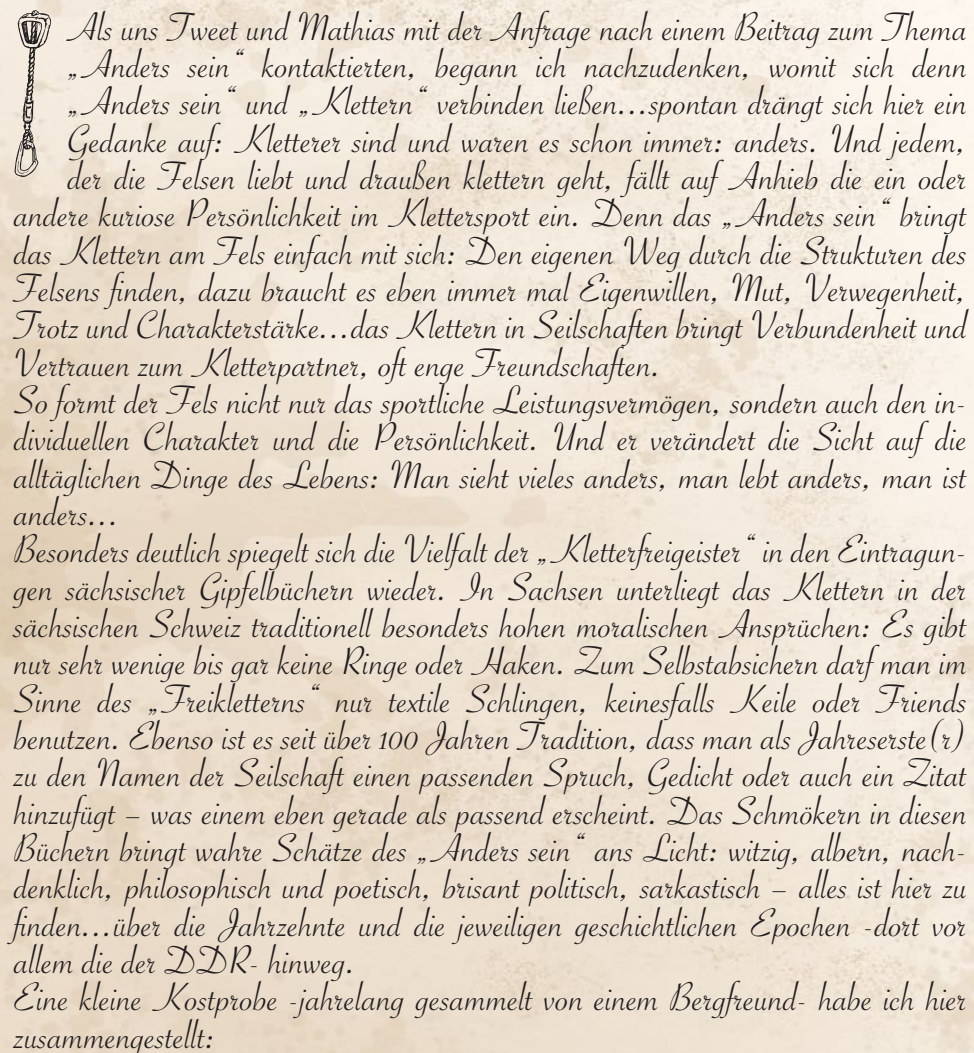 Als uns Tweet und Mathias mit der Anfrage nach einem Beitrag zum Thema
„Anders sein“ kontaktierten, begann ich nachzudenken, womit sich denn
„Anders sein“ und „Klettern“ verbinden ließen...spontan drängt sich hier ein
Gedanke auf: Kletterer sind und waren es schon immer: anders. Und jedem,
der die Felsen liebt und draußen klettern geht, fällt auf Anhieb die ein oder
andere kuriose Persönlichkeit im Klettersport ein. Denn das „Anders sein“ bringt
das Klettern am Fels einfach mit sich: Den eigenen Weg durch die Strukturen des
Felsens finden, dazu braucht es eben immer mal Eigenwillen, Mut, Verwegenheit,
Trotz und Charakterstärke...das Klettern in Seilschaften bringt Verbundenheit und
Vertrauen zum Kletterpartner, oft enge Freundschaften.
So formt der Fels nicht nur das sportliche Leistungsvermögen, sondern auch den in-
dividuellen Charakter und die Persönlichkeit. Und er verändert die Sicht auf die
alltäglichen Dinge des Lebens: Man sieht vieles anders, man lebt anders, man ist
anders...
Besonders deutlich spiegelt sich die Vielfalt der „Kletterfreigeister“ in den Eintragun-
gen sächsischer Gipfelbüchern wieder. In Sachsen unterliegt das Klettern in der
sächsischen Schweiz traditionell besonders hohen moralischen Ansprüchen: Es gibt
nur sehr wenige bis gar keine Ringe oder Haken. Zum Selbstabsichern darf man im
Sinne des „Freikletterns“ nur textile Schlingen, keinesfalls Keile oder Friends
benutzen. Ebenso ist es seit über 100 Jahren Tradition, dass man als Jahreserste(r)
zu den Namen der Seilschaft einen passenden Spruch, Gedicht oder auch ein Zitat
hinzufügt – was einem eben gerade als passend erscheint. Das Schmökern in diesen
Büchern bringt wahre Schätze des „Anders sein“ ans Licht: witzig, albern, nach-
denklich, philosophisch und poetisch, brisant politisch, sarkastisch – alles ist hier zu
finden...über die Jahrzehnte und die jeweiligen geschichtlichen Epochen -dort vor
allem die der DDR- hinweg.
Eine kleine Kostprobe -jahrelang gesammelt von einem Bergfreund- habe ich hier
zusammengestellt: